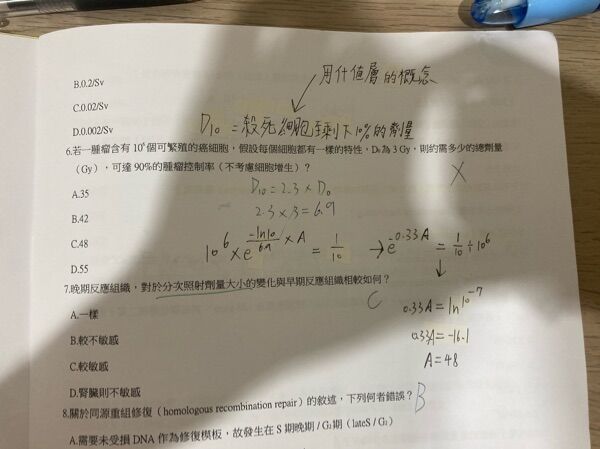 用什值層的概念
B.0.2/Sv
C.0.02/Sv
D₁₀ = 殺死細胞至剩下10%的劑量
D.0.002/Sv
6.若一腫瘤含有 10⁶ 個可繁殖的癌細胞，假設每個細胞都有一樣的特性，D₀為 3 Gy，則約需多少的總劑量
（Gy），可達 90%的腫瘤控制率（不考慮細胞增生）？
X
A.35
D₁₀ = 2.3 × D₀
B.42
2.3 × 3 = 6.9
C.48
10⁶ × e^(-ln10/6.9 × A) = 1/10 → e^(-0.33A) = 1/10 ÷ 10⁶
D.55
7.晚期反應組織，對於分次照射劑量大小的變化與早期反應組織相較如何？
C
A.一樣
0.33A = ln 10⁻⁷
B.較不敏感
0.33A = -16.1
C.較敏感
A = 48
D.腎臟則不敏感
8.關於同源重組修復（homologous recombination repair）的敘述，下列何者錯誤？ B
A.需要未受損 DNA 作為修復模板，故發生在 S 期晚期 / G₂期（lateS / G₂）